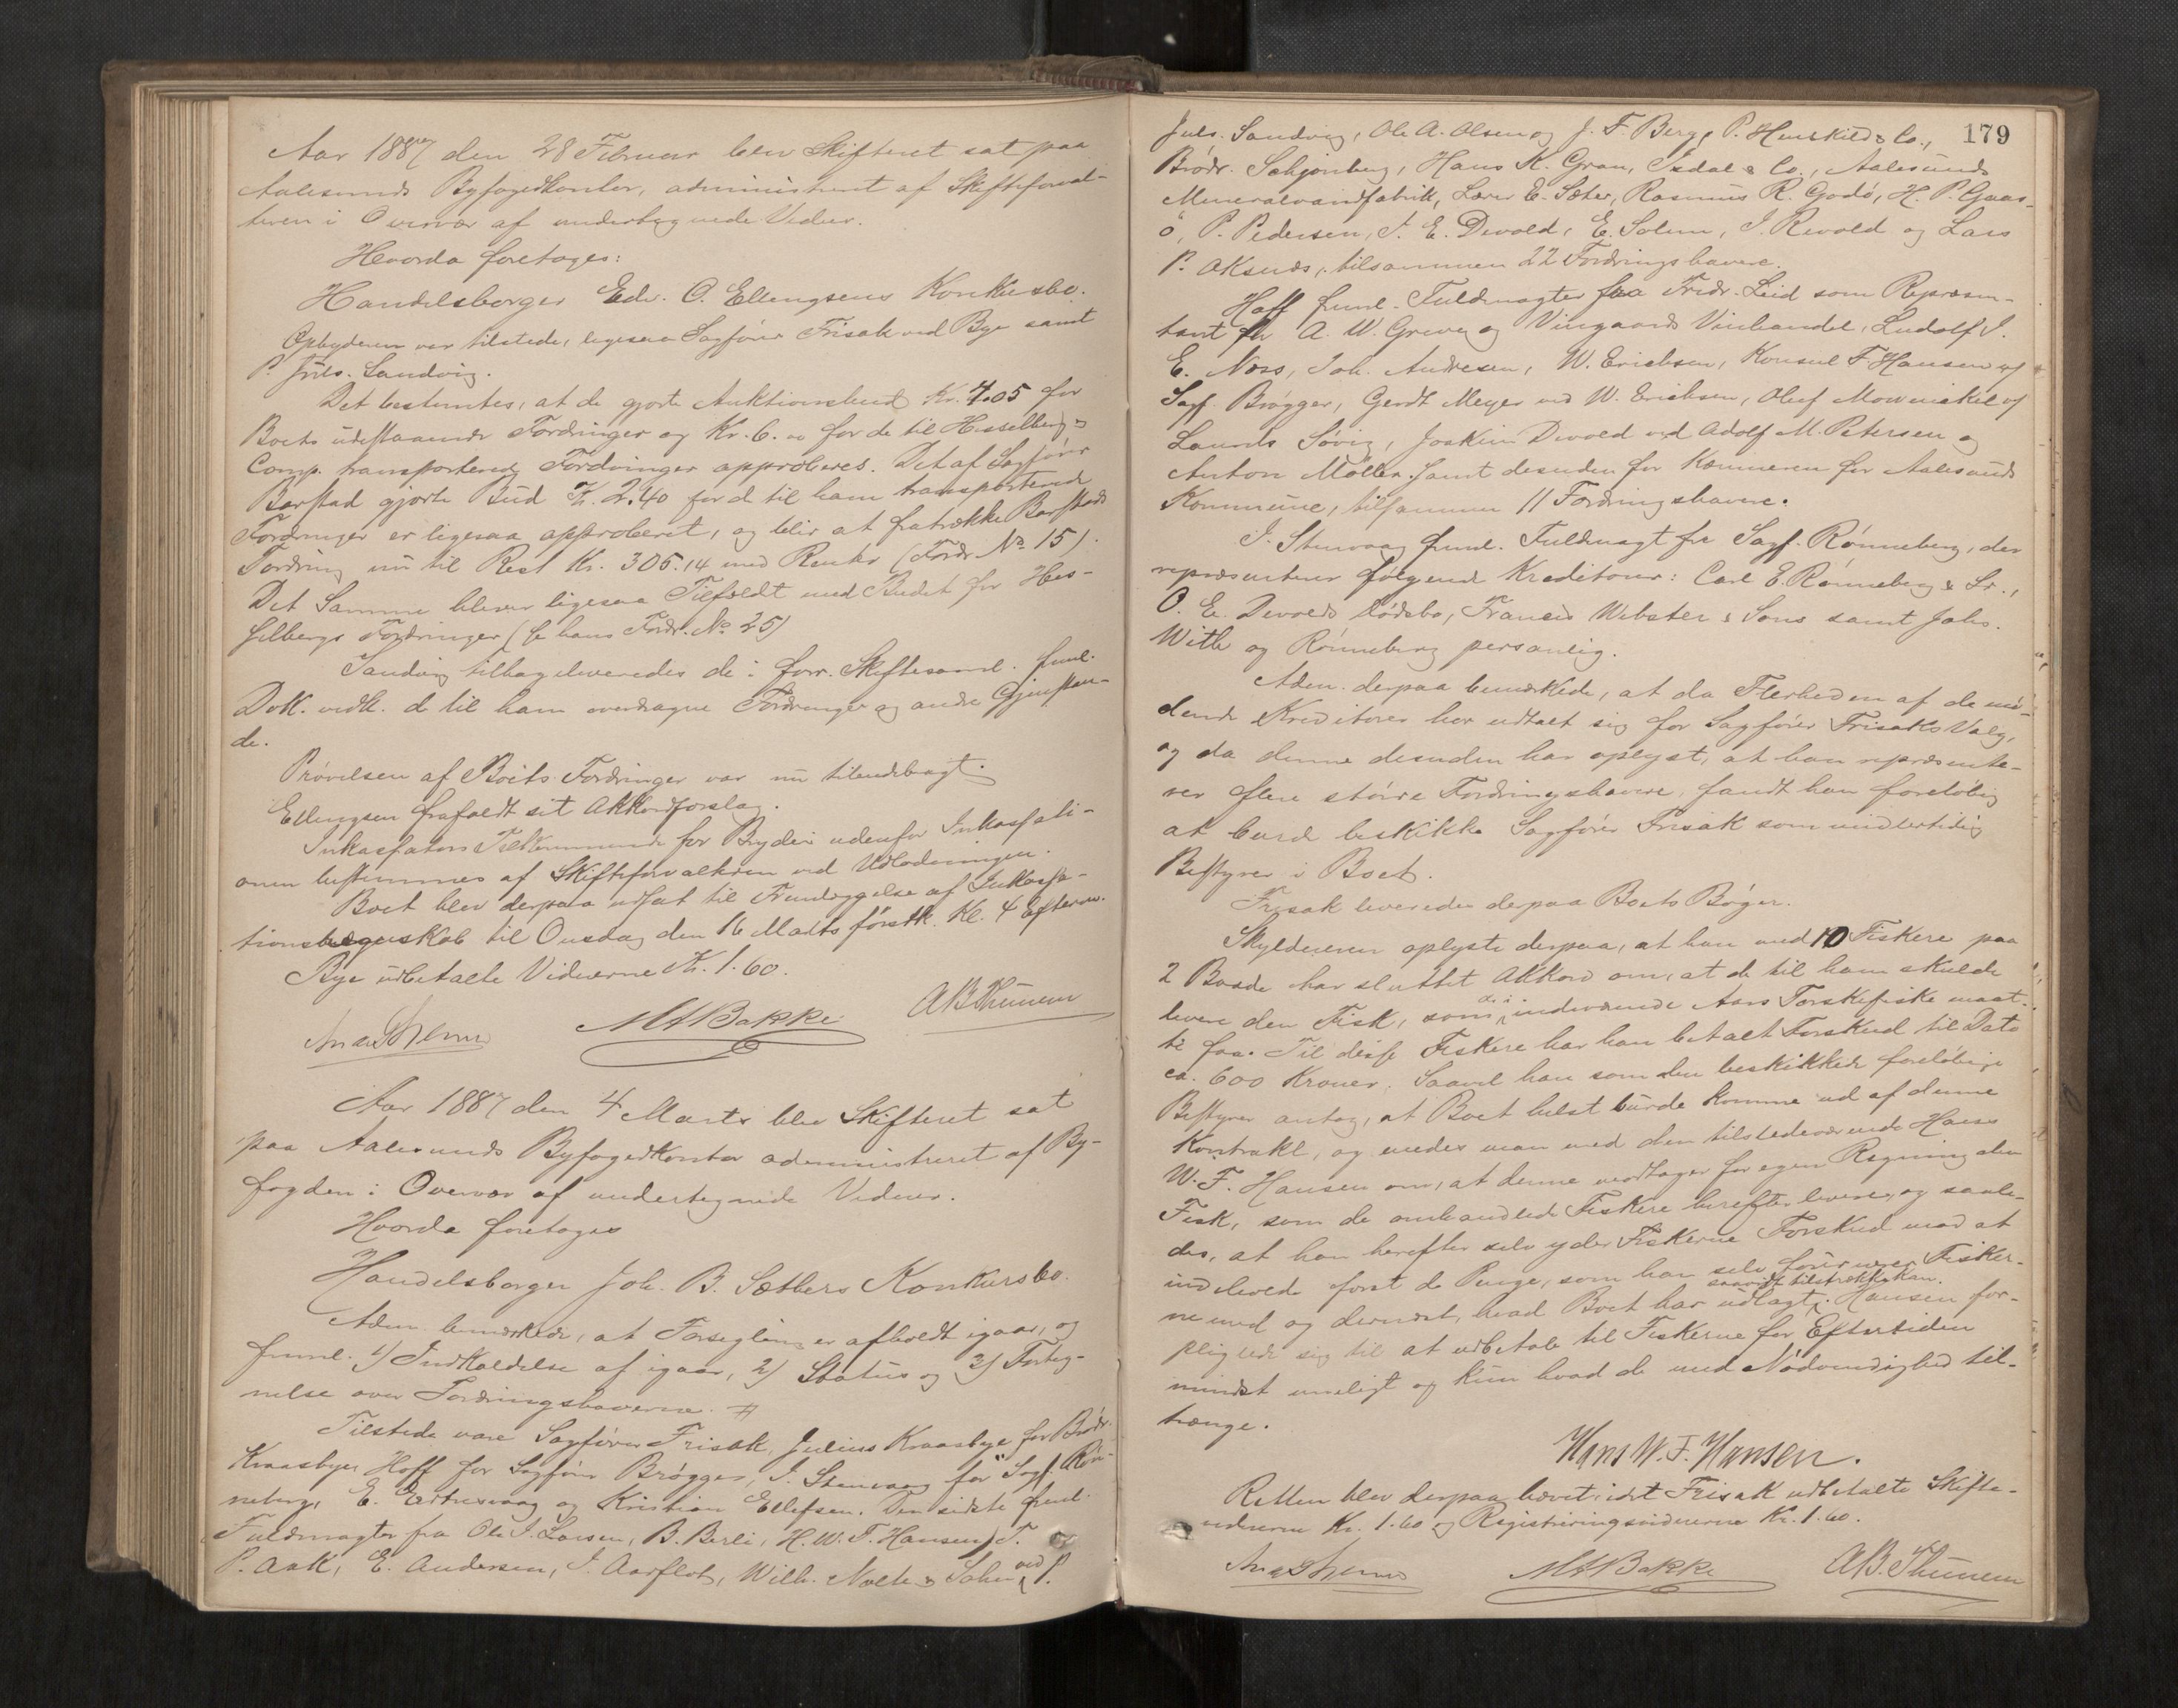 Aar 1887 den 28 Februar blev Skifteret sat paa
Aalesunds Byfogedkontor, administreret af Skifteforval-
teren i Overvær af undertegnede Vidner.
Hvorda foretoges:
Handelsborger Edv. O. Ellengsens Konkursbo.
Opbyderen var tilstede, ligesaa Sagfører Frisak ved Bye samt
P. Juls. Sandvig.
Det bestemtes, at de gjorte Auktionsbud Kr. 4.05 for
Boets udestaaende Fordringer og Kr. 6.00 for de til Hesselberg &
Comp. transporterede Fordringer approberes. Det af Sagfører
Barstad gjorte Bud Kr. 2.40 for de til ham transporterede
Fordringer er ligesaa approberet, og blir at fratrække Barstads
Fordring nu til Rest Kr. 305.14 med Renter (Fordr. No. 15).
Det Samme bliver ligesaa Tilfældt med Budet for Hes-
selbergs Fordringer (se hans Fordr. No. 25)
Sandvig tilbageleveredes de i forr. Skiftesaml. freml.
Dok. vedk. de til ham overdragne Fordringer og andre Gjenstan-
de.
Prøvelsen af Boets Fordringer var nu tilendebragt.
Ellingsen frafaldt sit Akkordforslag.
Inkassators Tilkommende for Bryderi udenfor Inkassati-
onen bestemmes af Skifteforvalteren ved Udlodningen.
Boet blev derpaa udsat til Fremlæggelse af Inkassa-
tionsregnskab til Onsdag den 16 Marts førstk. Kl. 4 Efterm.
Bye udbetalte Vidnerne Kr. 1.60.
MABakke ABThunem
Aar 1887 den 4 Marts blev Skifteret sat
paa Aalesunds Byfogedkontor administreret af By-
fogden i Overvær af undertegnede Vidner.
Hvorda foretoges
Handelsborger Joh. B. Sætbers Konkursbo.
Adm. bemærkede, at Forsegling er afholdt igaar, og
freml. 1) Indkaldelse af igaar, 2) Status og 3) Forteg-
nelse over Fordringshaverne. #
Tilstede vare Sagfører Frisak, Julius Kraasbye for Brdr.
Kraasbye, Hoff for Sagfører Brøgger, I. Stenvaag for Sagf. Røn-
neberg, E. og Kristian Ellefsen. Den sidste freml.
Fuldmagter fra Ole I. Larsen, B. Berli, H. W. F. Hansen, T.
P. Aak, E. Andersen, I. Aarflot, Wilh. Nolte & Sohn ved P.
179
Juls. Sandvig, Ole A. Olsen og J. F. Berg, P. Henskild & Co.,
Brødr. Schjønberg, Hans K. Gran, Isdal & Co., Aalesunds
Mineralvandfabrik, Lærer E. Sæter, Rasmus R. Godø, H. P. Gaas-
ø, P. Pedersen, A. E. Devold, E. Solem, I. Revold og Lars
P. Aksnæs, tilsammen 22 Fordringshavere.
Hoff freml. Fuldmagter fra Fredr. Leid som Repræsen-
tant for A. W. Greve og Vingaards Vinhandel, Ludolf I.
E. Næss, Joh. Andresen, W. Erichsen, Konsul F. Hansen og
Sagf. Brøgger, Gerdt Meyer ved W. Erichsen, Oluf Mowinckel og
Laurits Søvig, Joakim Devold ved Adolf M. Petersen og
Anton Møller samt desuden for Kæmneren for Aalesunds
Kommune, tilsammen 11 Fordringshavere.
I. Stenvaag freml. Fuldmagt fra Sagf. Rønneberg, der
repræsenterer følgende Kreditorer: Carl E. Rønneberg & Sr.,
O. E. Devolds Dødsbo, Francis Webster & Sons samt Johs.
With og Rønneberg personlig.
Adm. derpaa bemærkede, at da Flerheden af de mø-
dende Kreditorer har udtalt sig for Sagfører Frisaks Valg,
og da denne desuden har oplyst, at han repræsente-
rer flere større Fordringshavere, fandt han foreløbig
at burde beskikke Sagfører Frisak som midlertidig
Bestyrer i Boet.
Frisak leveredes derpaa Boets Bøger.
Skyldneren oplyste derpaa, at han med 10 Fiskere paa
2 Baade har sluttet Akkord om, at de til ham skulde
levere den Fisk, som de i indeværende Aars Torskefiske maat-
te faa. Til disse Fiskere har han betalt Forskud til Dato
ca. 600 Kroner. Saavel han som den beskikkede foreløbige
Bestyrer antog, at Boet helst burde komme ud af denne
Kontrakt, og enedes man med den tilstedeværende Hans
W. F. Hansen om, at denne modtager for egen Regning den
Fisk, som de omhandlede Fiskere herefter levere, og saale-
des, at han herefter selv yder Fiskerne Forskud mod at
indeholde først de Penge, som han selv fournerer Fisker-
ne med og dernæst, hvad Boet har udlagt, saavidt tilstrække kan. Hansen for-
pligtede sig til at udbetale til Fiskerne for Eftertiden
mindst muligt og kun hvad de med Nødvendighed til-
trænge.
Hans W. F. Hansen.
Retten blev derpaa hævet, idet Frisak udbetalte Skifte-
vidnerne Kr. 1.60 og Registreringsvidnerne Kr. 1.60.
MABakke AB.Thunem